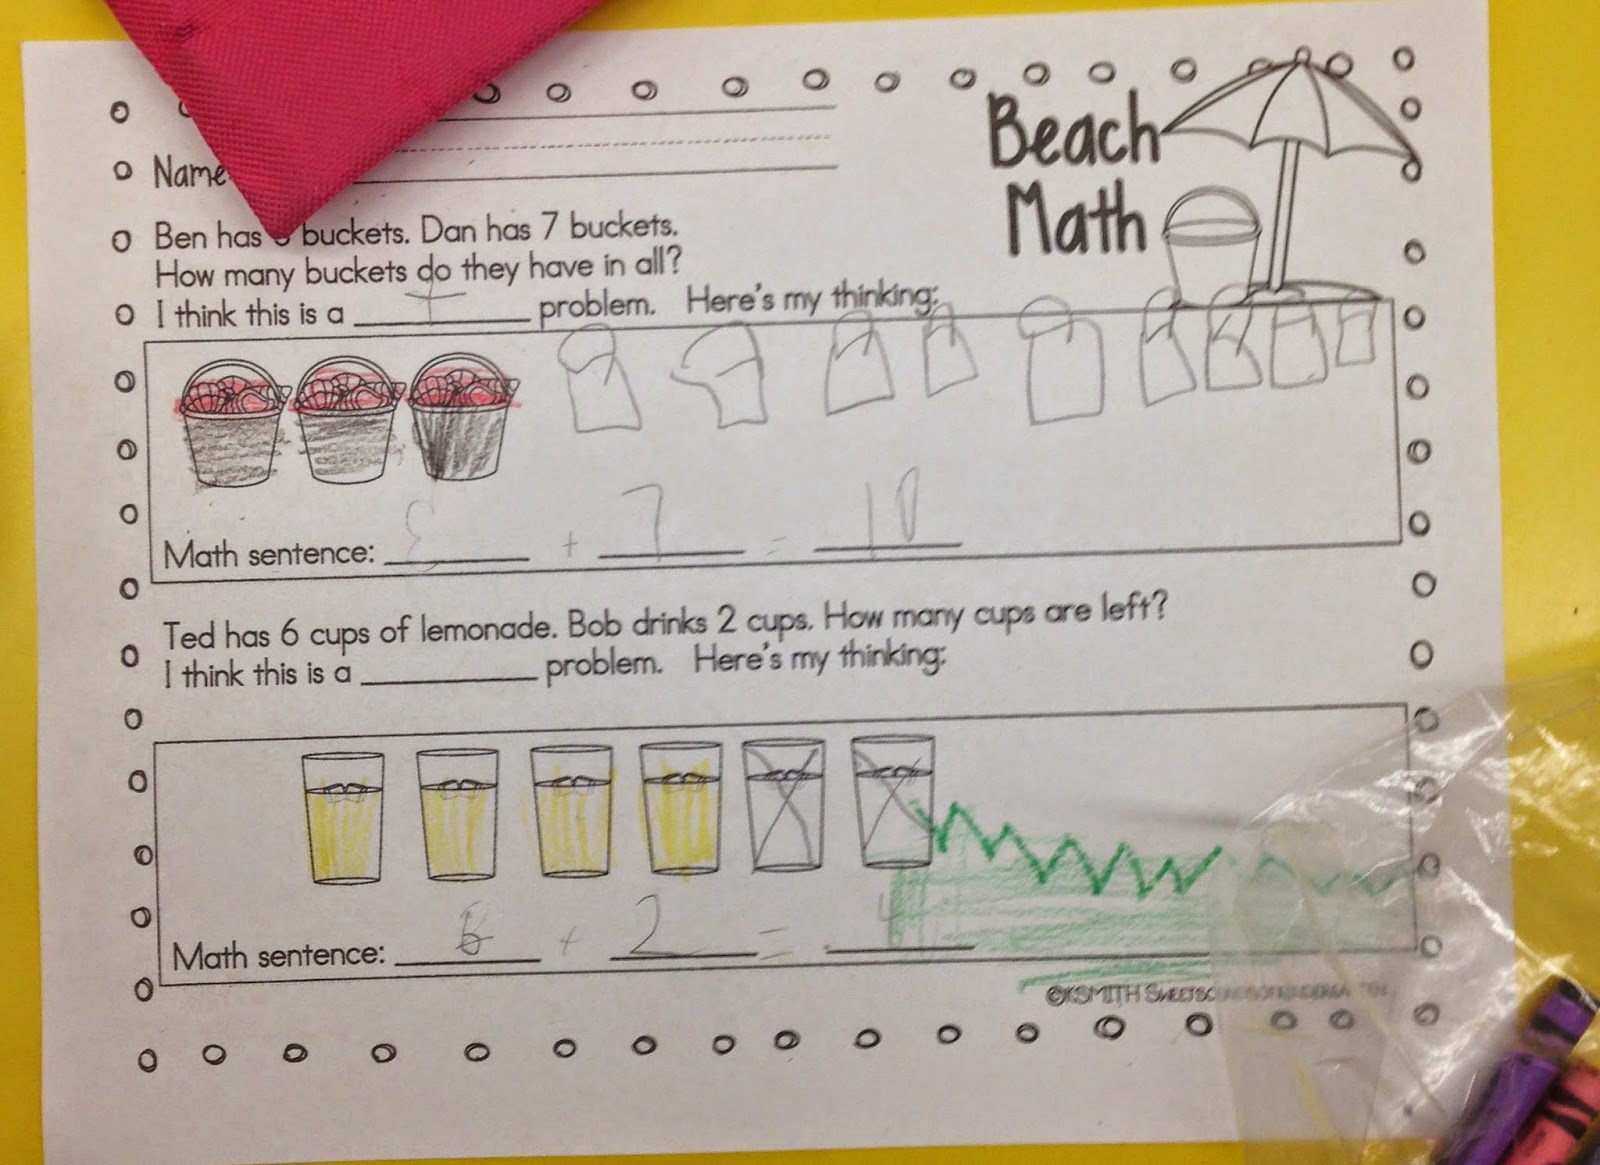 Beach
Math
Name
Ben has buckets. Dan has 7 buckets.
How many buckets do they have in all?
I think this is a + problem. Here's my thinking:
Math sentence: + 7 = 10
Ted has 6 cups of lemonade. Bob drinks 2 cups. How many cups are left?
I think this is a ________ problem. Here's my thinking:
Math sentence: 6 + 2 = 4
©KSMITH